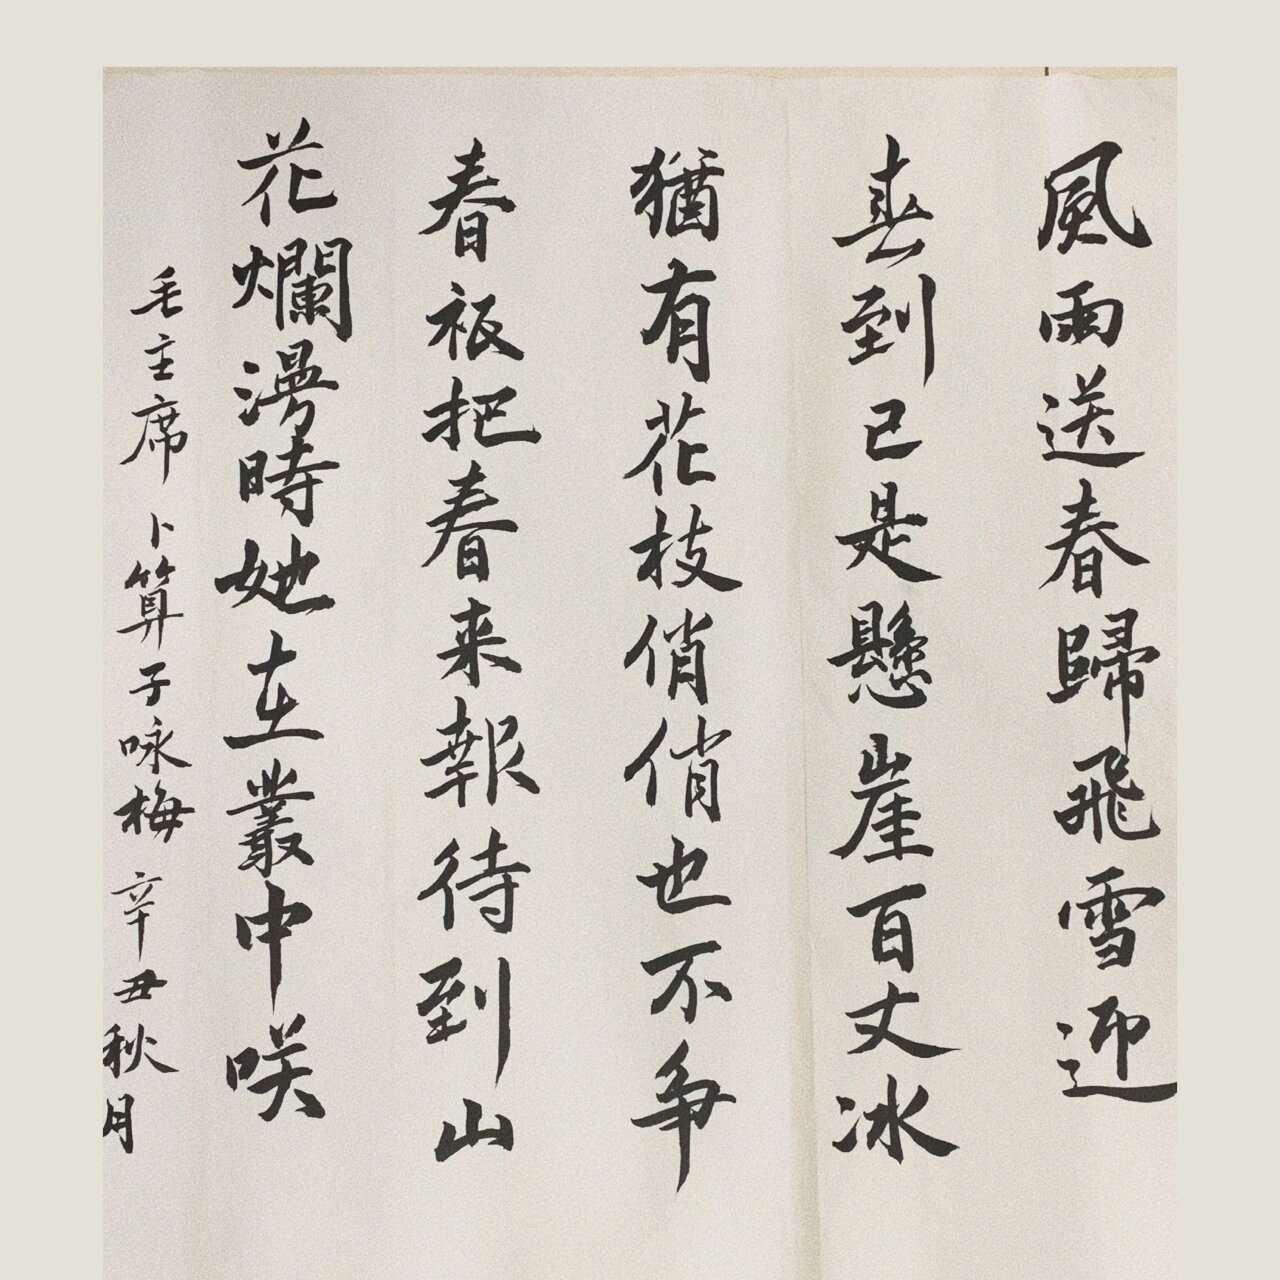 風雨送春歸飛雪迎
春到已是懸崖百丈冰
猶有花枝俏俏也不爭
春祇把春来報待到山
花爛漫時她在叢中咲
毛主席卜算子咏梅辛丑秋月